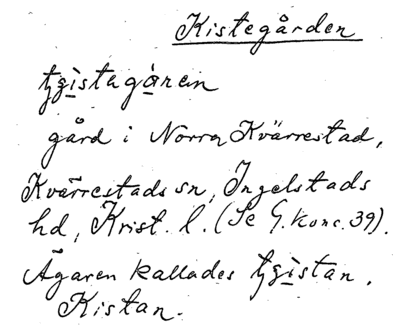 Kistegården
tʒistagåren
gård i Norra Kvärrestad,
Kvärrestads sn, Ingelstads
hd, Krist. l. (Se G. konc. 39).
Ägaren kallades tʒistan,
Kistan.